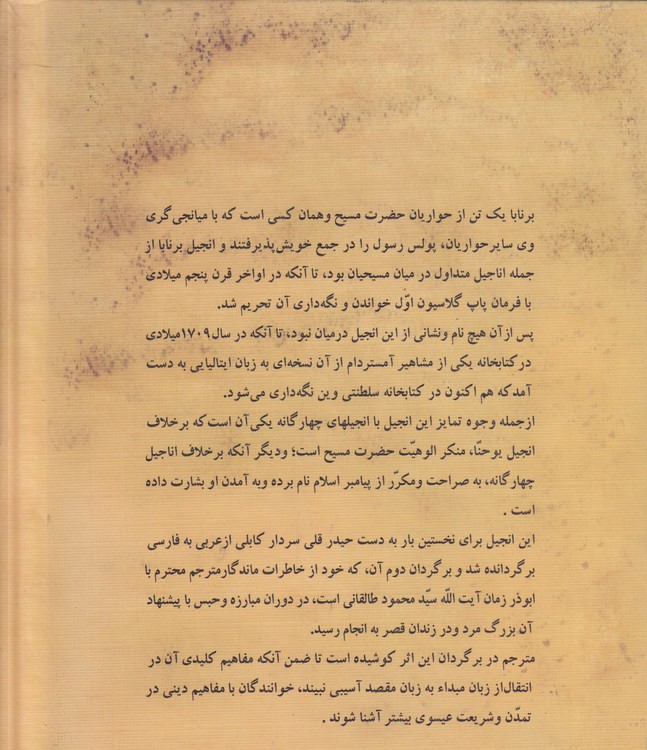 برنابا یک تن از حواریان حضرت مسیح وهمان کسی است که با میانجی‌گری
وی سایرحواریان، پولس رسول را در جمع خویش‌پذیرفتند و انجیل برنابا از
جمله اناجیل متداول در میان مسیحیان بود، تا آنکه در اواخر قرن پنجم میلادی
با فرمان پاپ گلاسیون اوّل خواندن و نگه‌داری آن تحریم شد.
پس ازآن هیچ نام ونشانی از این انجیل درمیان نبود، تا آنکه در سال۱۷۰۹میلادی
درکتابخانه یکی از مشاهیر آمستردام از آن نسخه‌ای به زبان ایتالیایی به دست
آمدکه هم اکنون در کتابخانه سلطنتی وین نگه‌داری می‌شود.
ازجمله وجوه تمایز این انجیل با انجیلهای چهارگانه یکی‌آن است‌که برخلاف
انجیل یوحنّا، منکر الوهیّت حضرت مسیح است؛ ودیگر آنکه برخلاف اناجیل
چهارگانه، به صراحت ومکرّر از پیامبر اسلام نام برده وبه آمدن او بشارت داده
است .
این انجیل برای نخستین بار به دست حیدر قلی سردار کابلی ازعربی به فارسی
برگردانده شد و برگردان دوم آن، که خود از خاطرات ماندگارمترجم محترم با
ابوذر زمان آیت اللّه سیّد محمود طالقانی است، در دوران مبارزه وحبس با پیشنهاد
آن بزرگ مرد ودر زندان قصر به انجام رسید.
مترجم در برگردان این اثر کوشیده است تا ضمن آنکه مفاهیم کلیدی آن در
انتقال‌از زبان مبداء به زبان مقصد آسیبی نبیند، خوانندگان با مفاهیم دینی در
تمدّن وشریعت عیسوی بیشتر آشنا شوند .